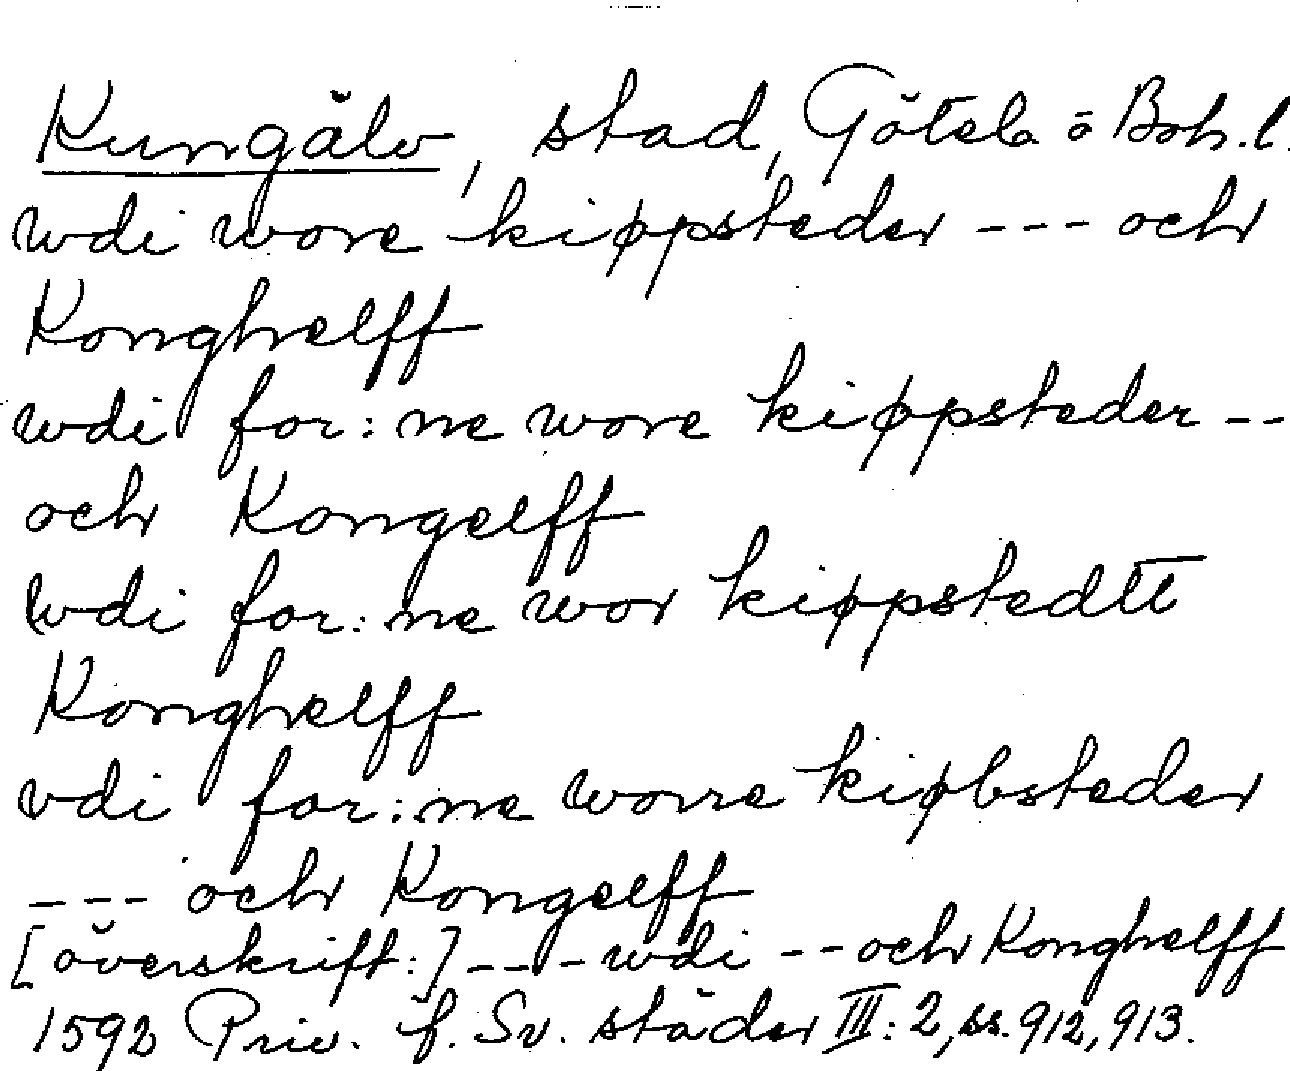 Kungälv, stad, Götebs ö Boh. l.
wdi wore kiøpsteder --- och
Konghelff
wdi for:ne wore kiøpsteder --
och Kongelff
wdi for:ne wor kiøpstedtt
Konghelff
vdi for:ne worre kiøbsteder
--- och Kongelff
[överskrift:] --- wdi -- och Konghelff
1592 Priv. f. Sv. städer III: 2, ss. 912, 913.